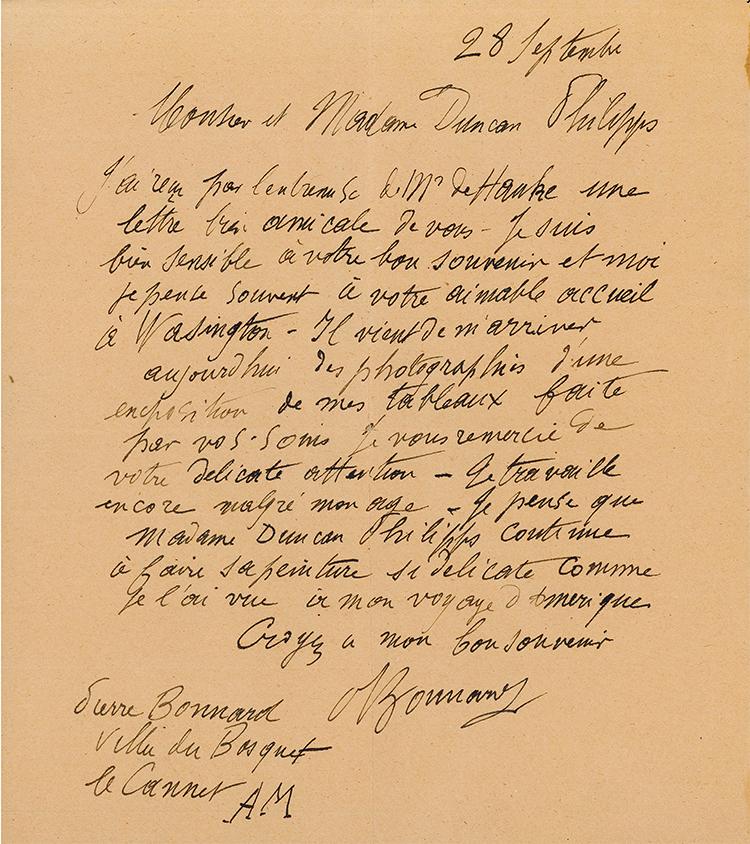 28 Septembre
Monsieur et Madame Duncan Philipps
J'ai reçu par l'entremise de Mr de Hauke une
lettre bien amicale de vous - Je suis
bien sensible à votre bon souvenir et moi
je pense souvent à votre aimable accueil
à Wasington - Il vient de m'arriver
aujourdhui des photographies d'une
exposition de mes tableaux faite
par vos soins je vous remercie de
votre délicate attention - Je travaille
encore malgré mon age - Je pense que
Madame Duncan Philipps continue
à faire sa peinture si délicate comme
je l'ai vue à mon voyage d'Amerique
Croyez a mon bon souvenir
PBonnard
Pierre Bonnard
Villa du Bosquet
le Cannet A.M